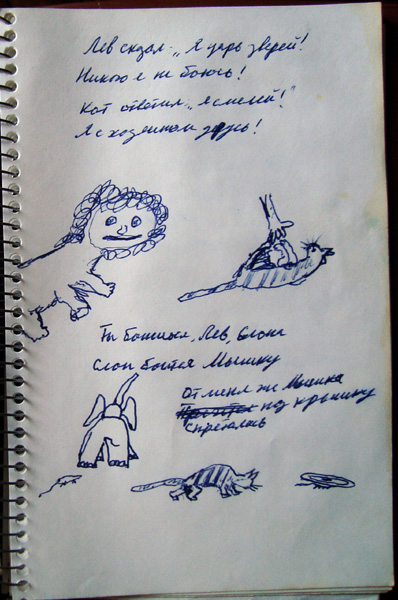 Лев сказал „Я царь зверей!
Никого я не боюсь!
Кот ответил „Я смелей!"
Я с хозяином дружу!
Ты боишься, Лев, Слона
Слон боится Мышку
От меня же Мышка
под крышку
спряталась